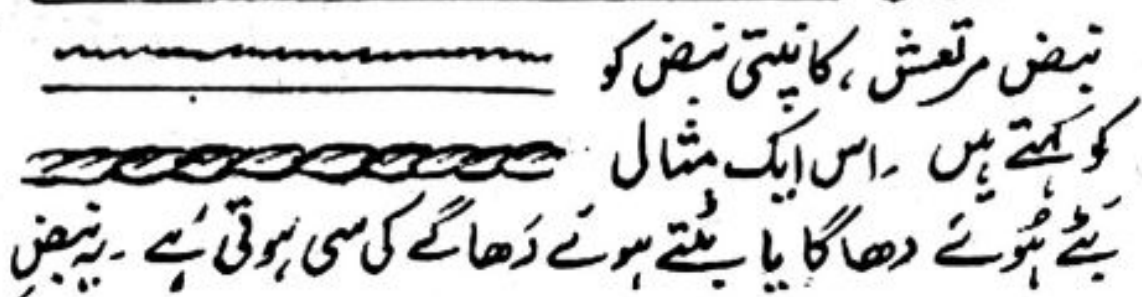 نبض مرتعش ، کانپتی نبض کو
کو کہتے ہیں ۔ اس ایک مثال
بٹے ہُوئے دھاگا یا بٹتے ہوئے دَھاگے کی سی ہوتی ہَے ۔ یہ نبض